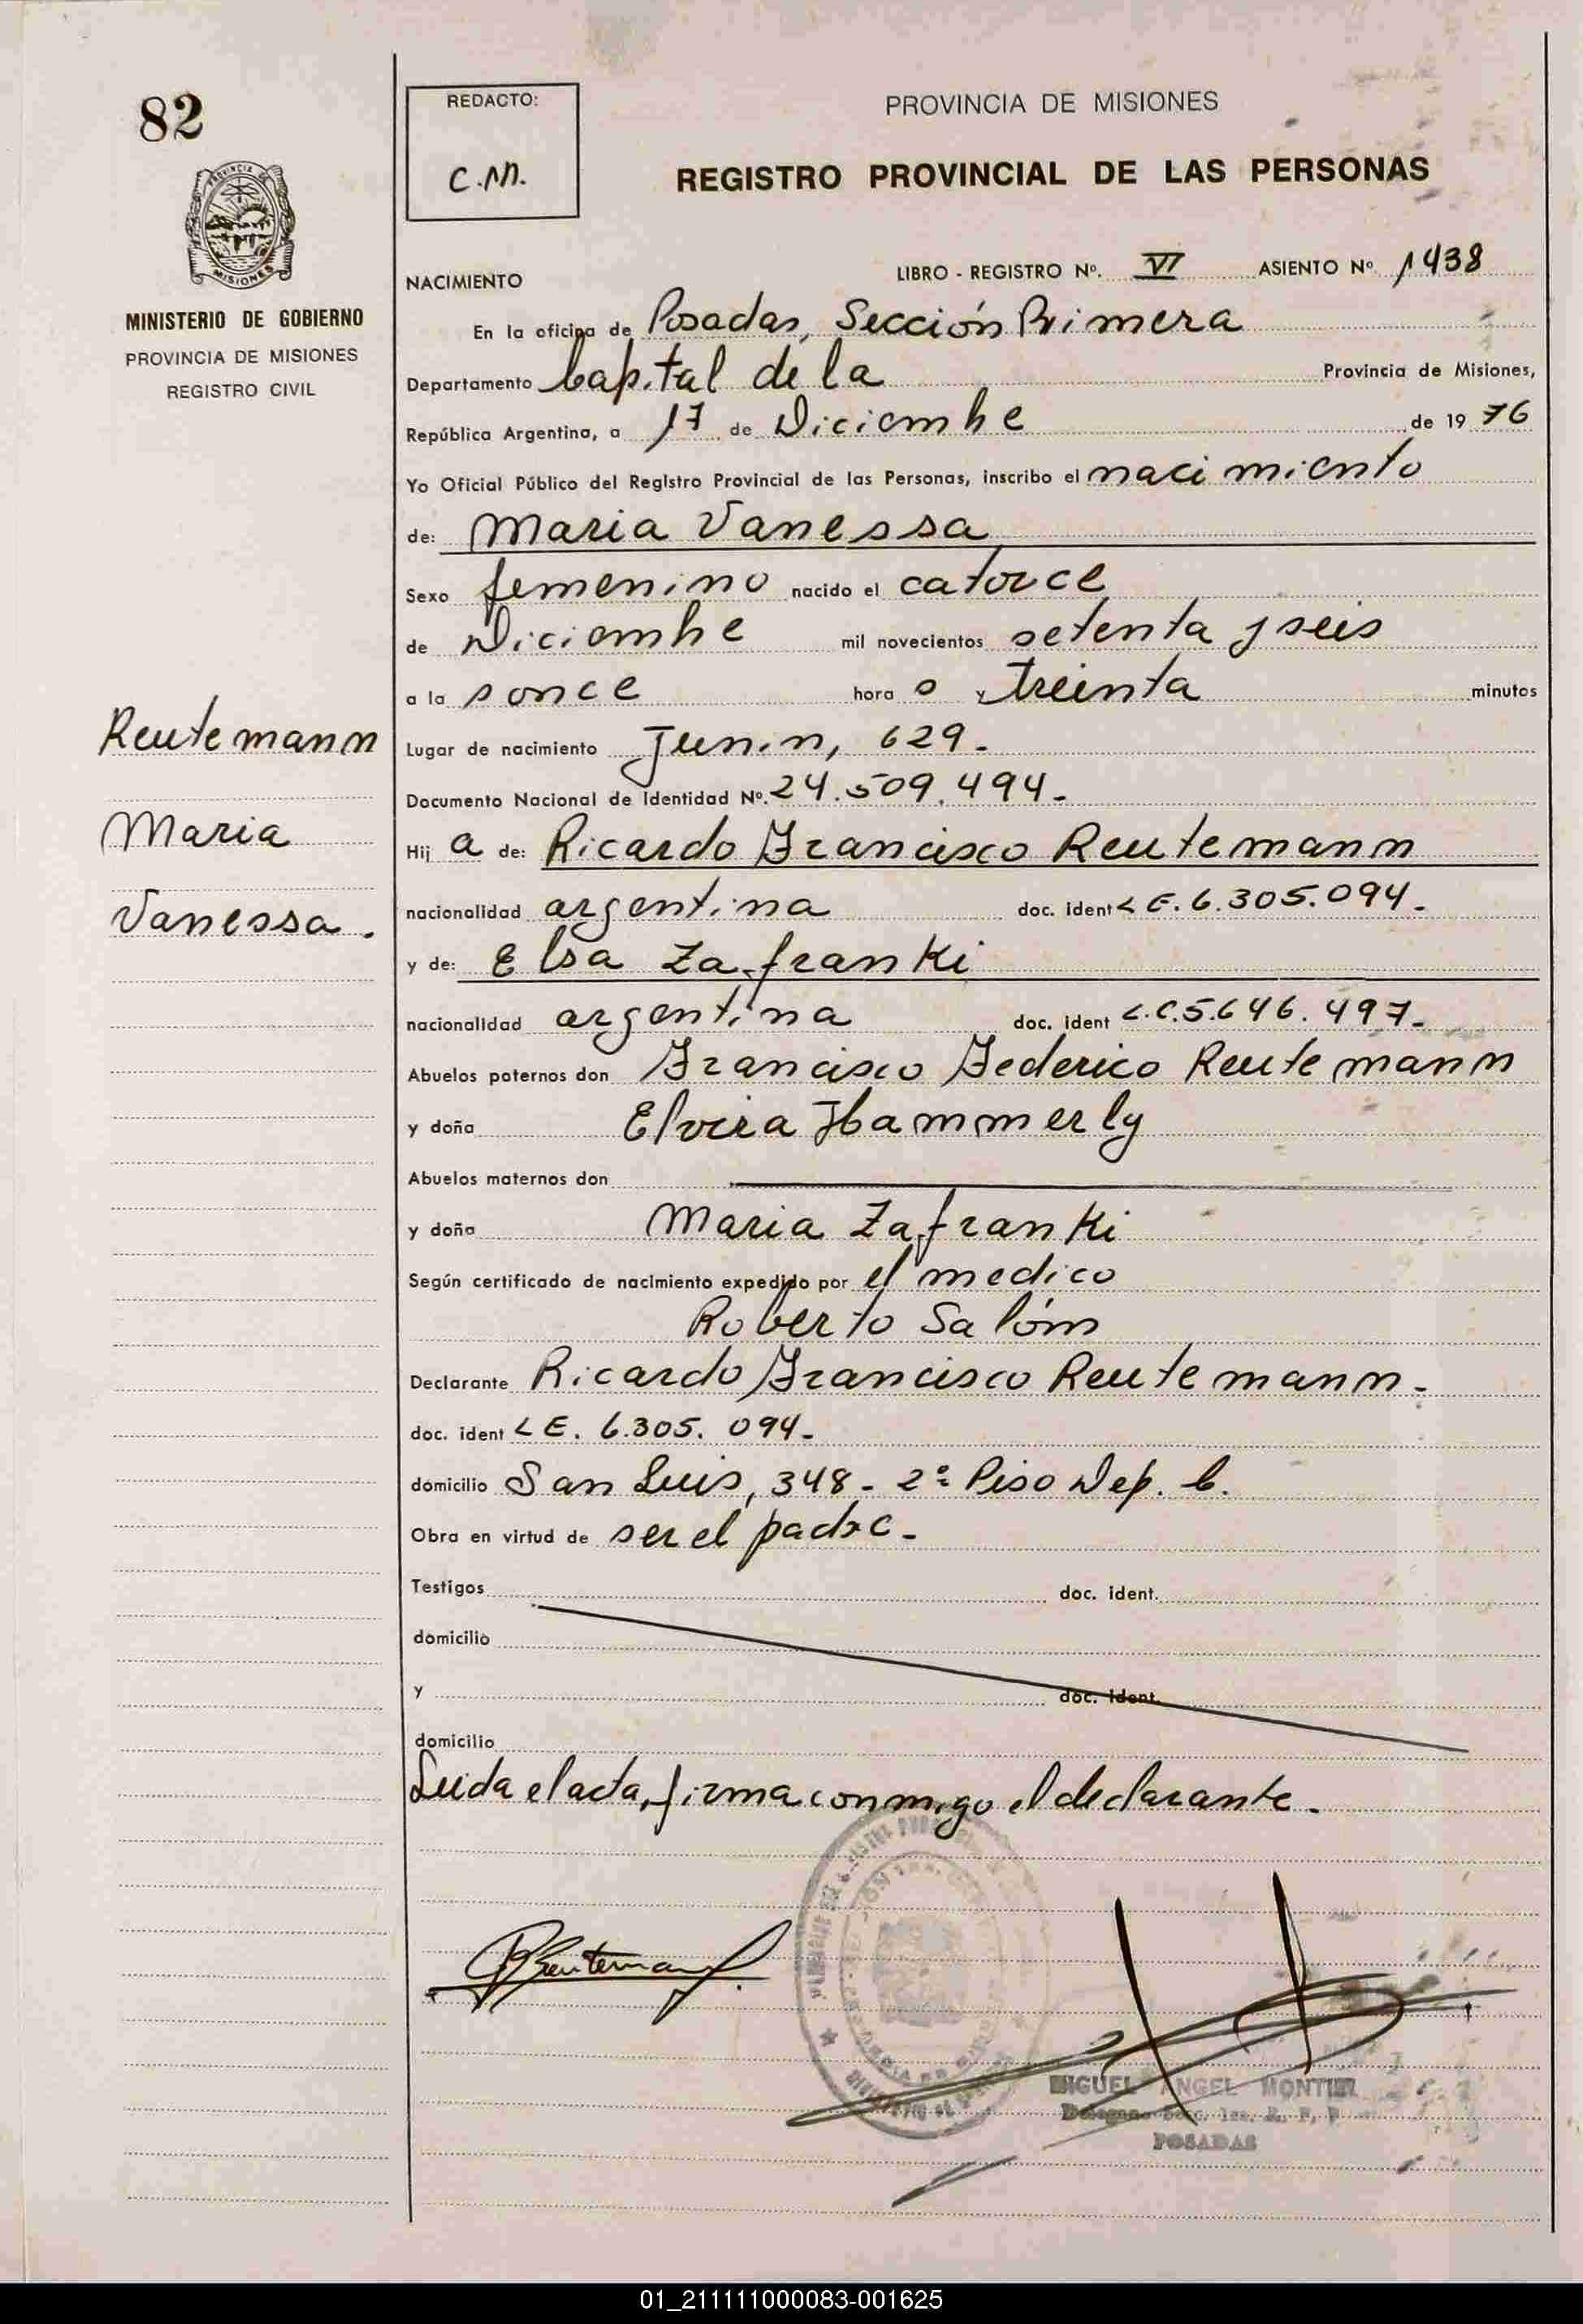 82
REDACTO:
C.M.
PROVINCIA DE MISIONES
REGISTRO PROVINCIAL DE LAS PERSONAS
MISIONES
MINISTERIO DE GOBIERNO
PROVINCIA DE MISIONES
REGISTRO CIVIL
NACIMIENTO
LIBRO - REGISTRO Nº. VI ASIENTO Nº 1438
En la oficina de Posadas, Sección Primera
Departamento Capital de la Provincia de Misiones,
República Argentina, a 17 de Diciembre de 1976
Yo Oficial Público del Registro Provincial de las Personas, inscribo el nacimiento
de: Maria Vanessa
Sexo femenino nacido el catorce
de Diciembre mil novecientos setenta y seis
a la s once hora s y treinta minutos
Lugar de nacimiento Junin, 629.-
Documento Nacional de Identidad Nº. 24.509.494.-
Hij a de: Ricardo Francisco Reutemann
nacionalidad argentina doc. ident L E. 6.305.094.-
y de: Elsa Zafranki
nacionalidad argentina doc. ident L.C. 5.646.497.-
Abuelos paternos don Francisco Federico Reutemann
y doña Elvira Hammerly
Abuelos maternos don
y doña Maria Zafranki
Según certificado de nacimiento expedido por el medico
Roberto Salóm
Declarante Ricardo Francisco Reutemann.-
doc. ident L E. 6.305.094.-
domicilio San Luis, 348 - 2º Piso Dep. C.
Obra en virtud de ser el padre.-
Testigos doc. ident.
domicilio
y doc. ident.
domicilio
Leida el acta, firma conmigo el declarante.-
Reutemann
Maria
Vanessa.
MIGUEL ANGEL MONTIEL
POSADAS
01_211111000083-001625